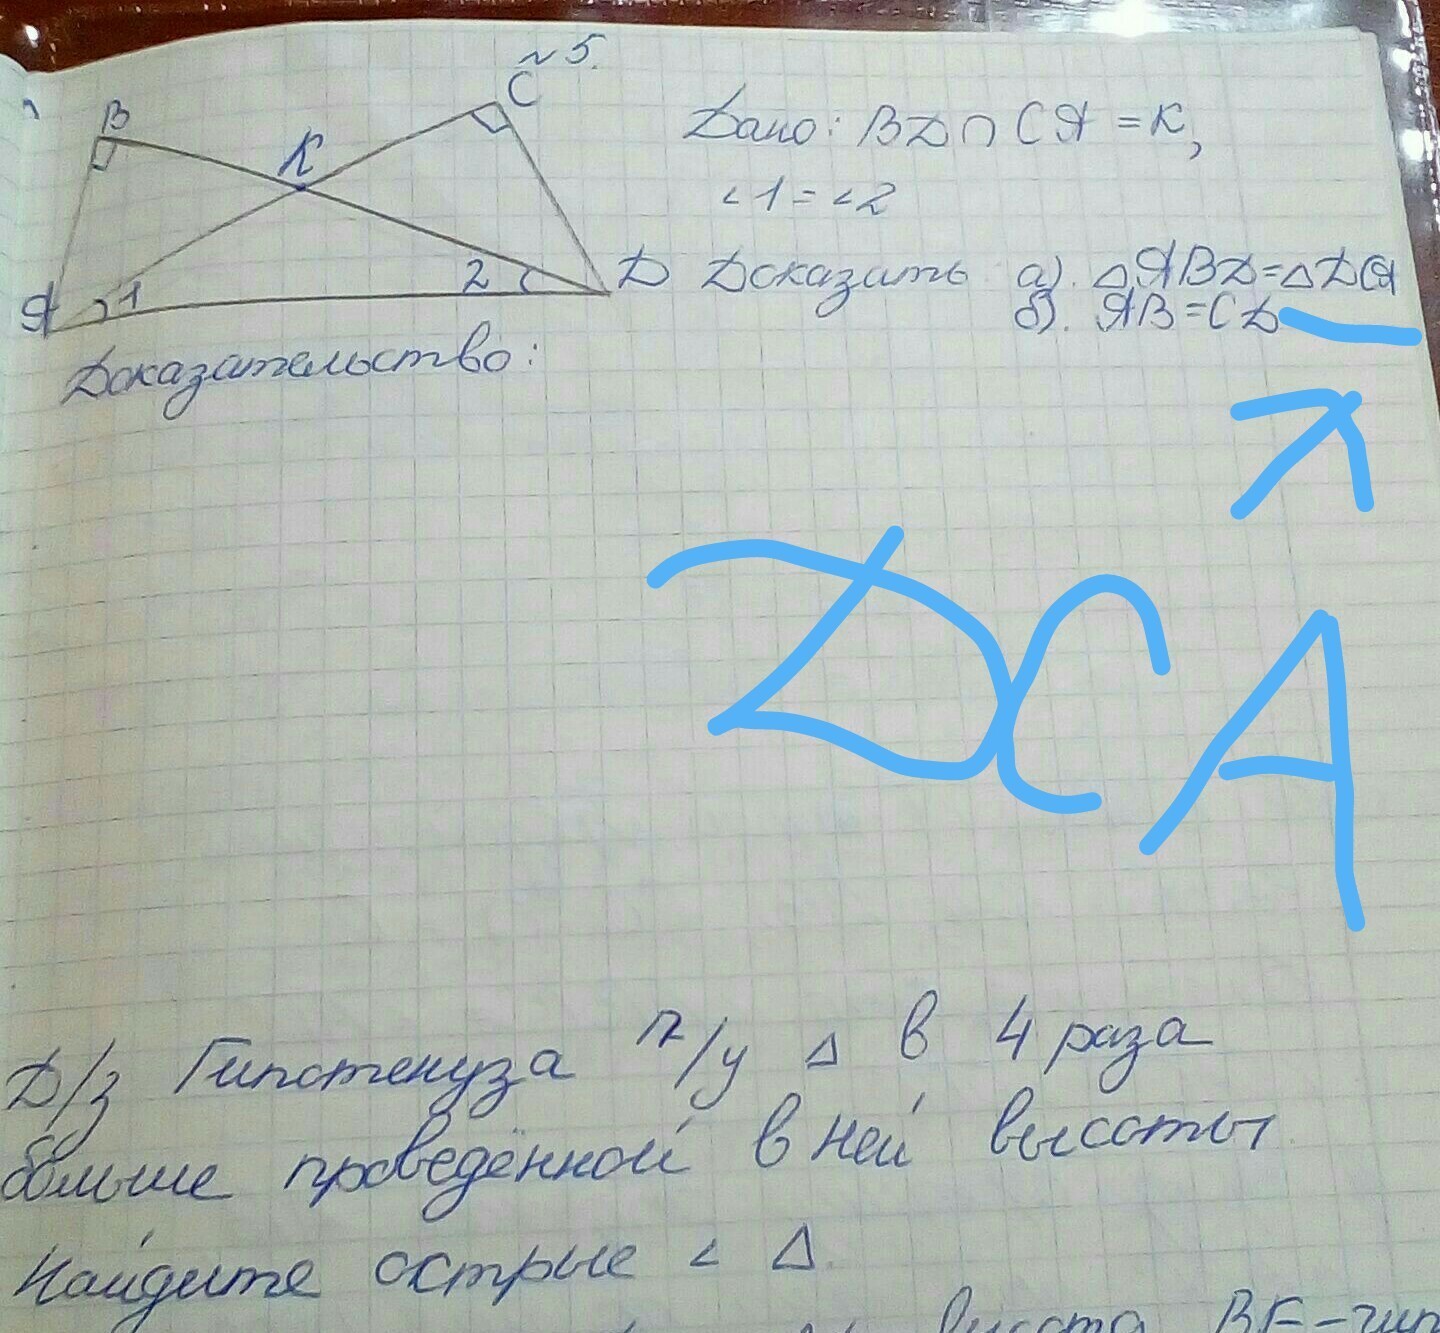 №5.
B
C
K
A
1
2
D
Дано: BD∩CA=K,
∠1=∠2
Доказать: а). △ABD=△DCA
б). AB=CD
Доказательство:
DCA
Д/з Гипотенуза п/у △ в 4 раза
больше проведённой в ней высоты
Найдите острые ∠ △.
высота BF-гип